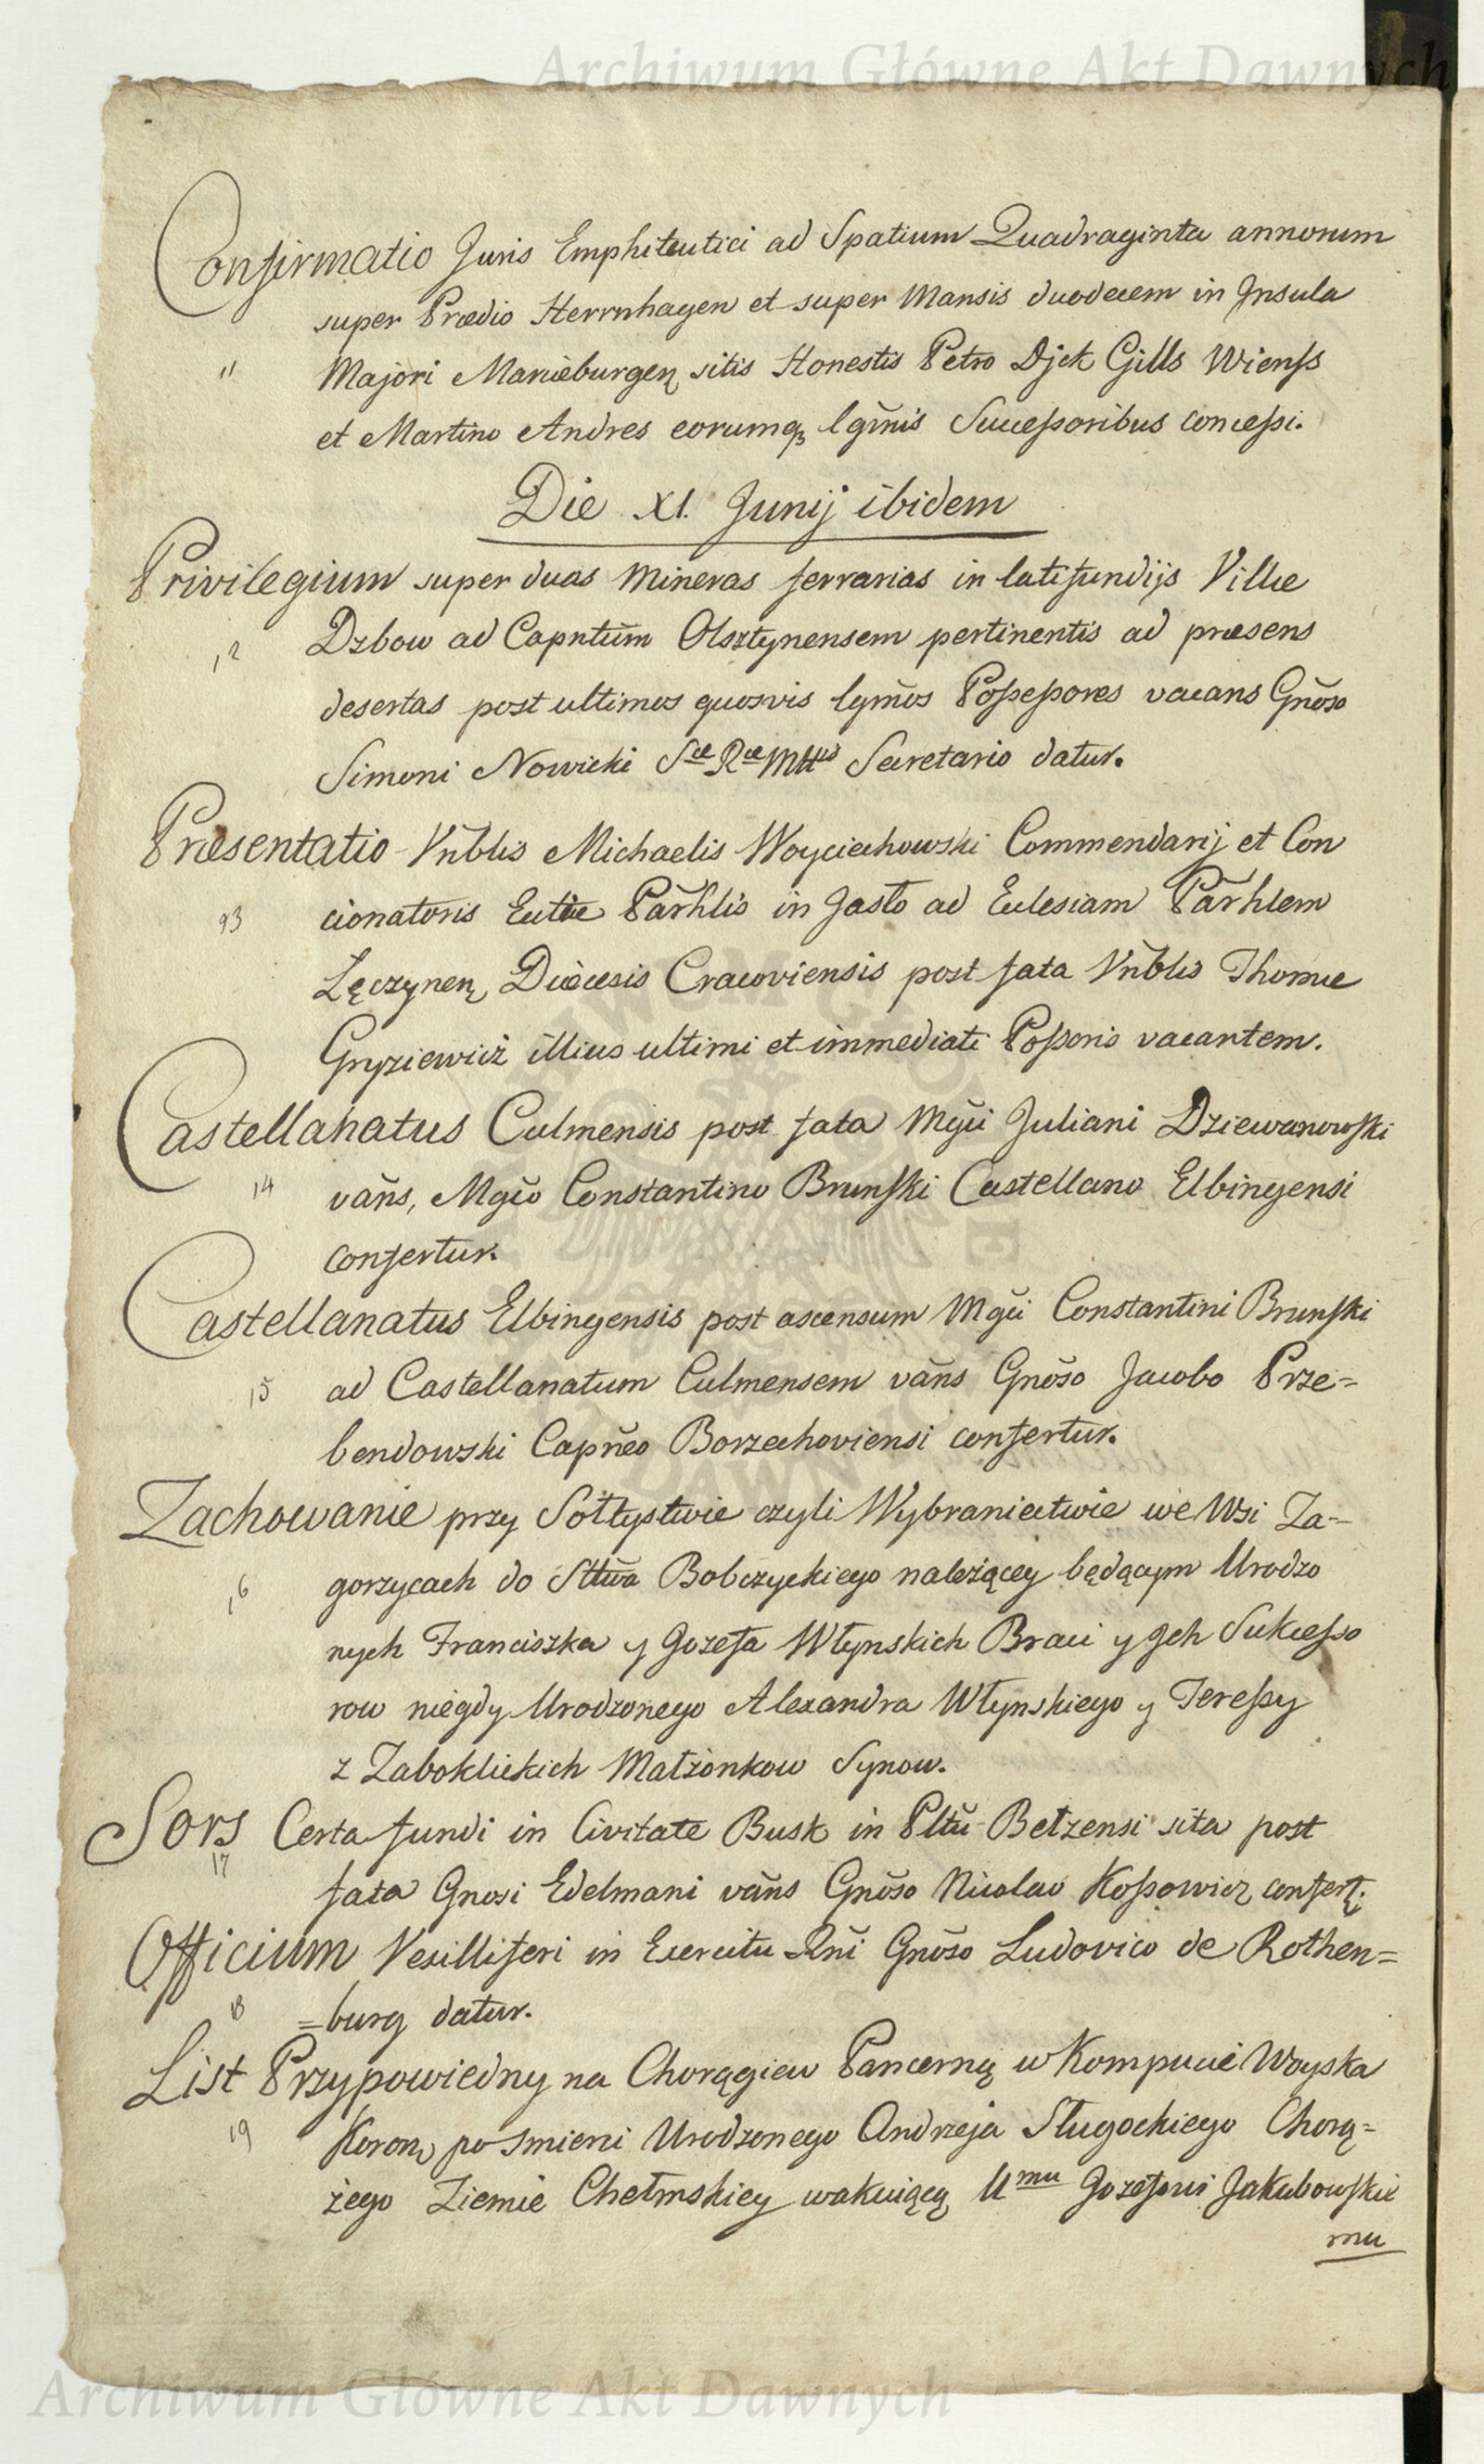 Archiwum Główne Akt Dawnych
Confirmatio Juris Emphiteutici ad Spatium Quadraginta annorum
super Prædio Herrnhagen et super Mansis duodecem in Insula
11 Majori Marieburgen sitis Honestis Petro Djck Gills Wienss
et Martino Andres eorumq lgm̃is Successoribus concessi.
Die XI. Junij ibidem
Privilegium super duas Mineras ferrarias in latifundijs Villæ
12 Dzbow ad Capntũm Olsztynensem pertinentis ad præsens
desertas post ultimos quosvis lgm̃os Possessores vacans Gnõso
Simoni Nowicki Sæ Ræ Mttis Secretario datur.
Præsentatio Vnb̃lis Michaelis Woyciechowski Commendarij et Con
13 cionatoris Ecclæ Par̃hlis in Jasło ad Eclesiam Par̃hlem
Łęczynen Diæcesis Cracoviensis post fata Vnb̃lis Thomæ
Gryziewicz illius ultimi et immediati Possoris vacantem.
Castellanatus Culmensis post fata Mgc̃i Juliani Dziewanowski
14 vañs, Mgc̃o Constantino Brunski Castellano Elbingensi
confertur.
Castellanatus Elbingensis post ascensum Mgc̃i Constantini Brunski
15 ad Castellanatum Culmensem vañs Gnõso Jacobo Prze=
bendowski Capnẽo Borzechoviensi confertur.
Zachowanie przy Sołtystwie czyli Wybraniectwie we Wsi Za=
16 gorzycach do Sttwa Bobczyckiego należącey będącym Urodzo
nych Franciszka y Jozefa Włynskich Braci y Jch Sukcesso
row niegdy Urodzonego Alexandra Włynskiego y Teressy
z Zaboklickich Małżonkow Synow.
Sors Certa fundi in Civitate Busk in Pltũ Bełzensi sita post
17 fata Gnosi Edelmani vañs Gnõso Nicolao Kossowicz confert.
Officium Vexilliferi in Exercitu Rñi Gnõso Ludovico de Rothen=
18 =burg datur.
List Przypowiedny na Chorągiew Pancerną w Kompucie Woyska
19 Koron po Smierci Urodzonego Andrzeja Sługockiego Chorą=
żego Ziemie Chełmskiey wakuiącą Umu Jozefowi Jakubowskie
mu
Archiwum Główne Akt Dawnych